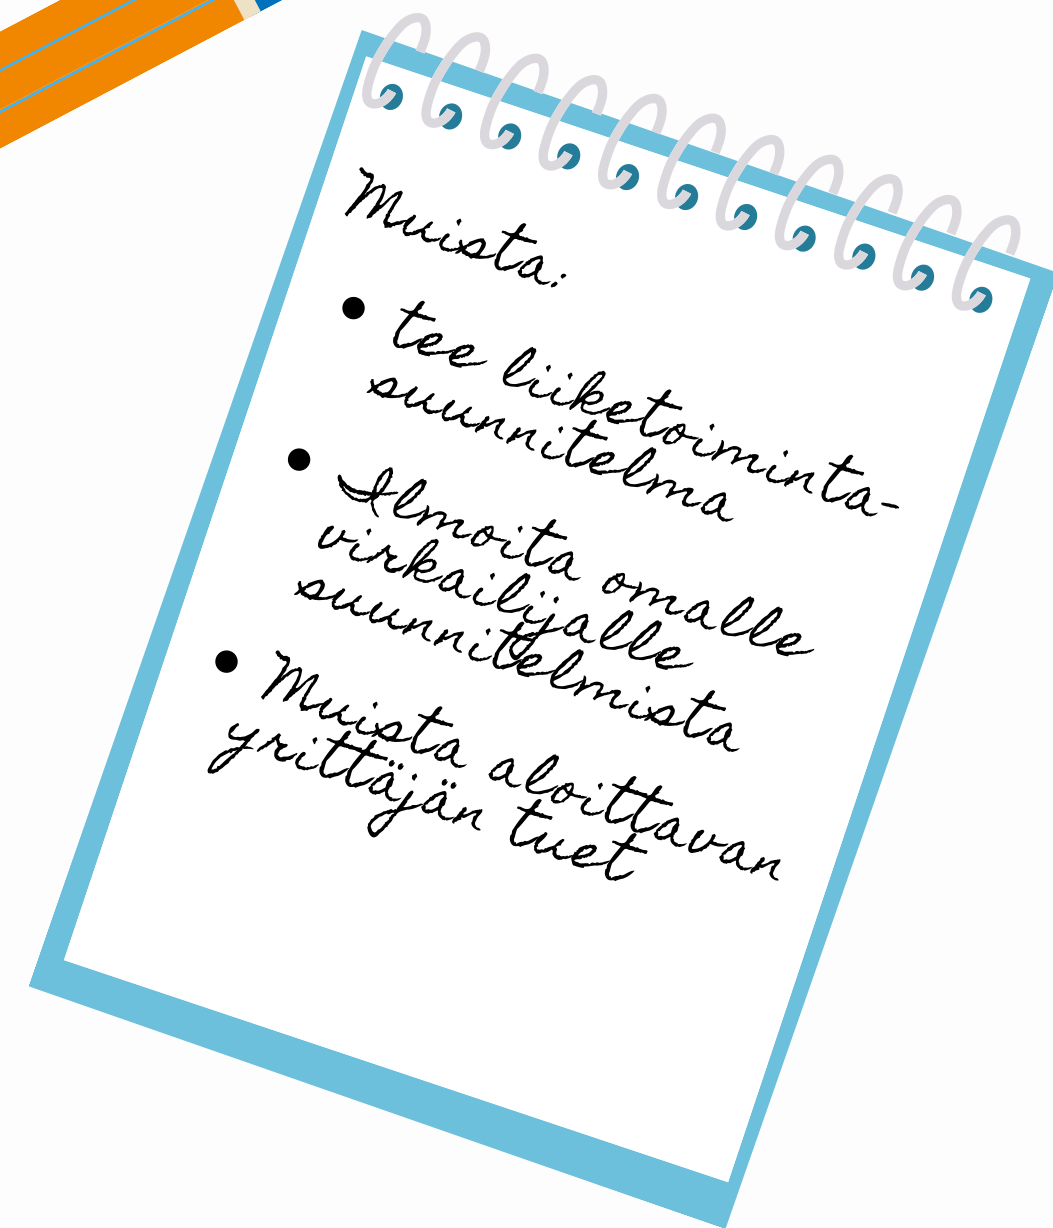 Muista:
• tee liiketoiminta-
suunnitelma
• Ilmoita omalle
virkailijalle
suunnitelmista
• Muista aloittavan
yrittäjän tuet